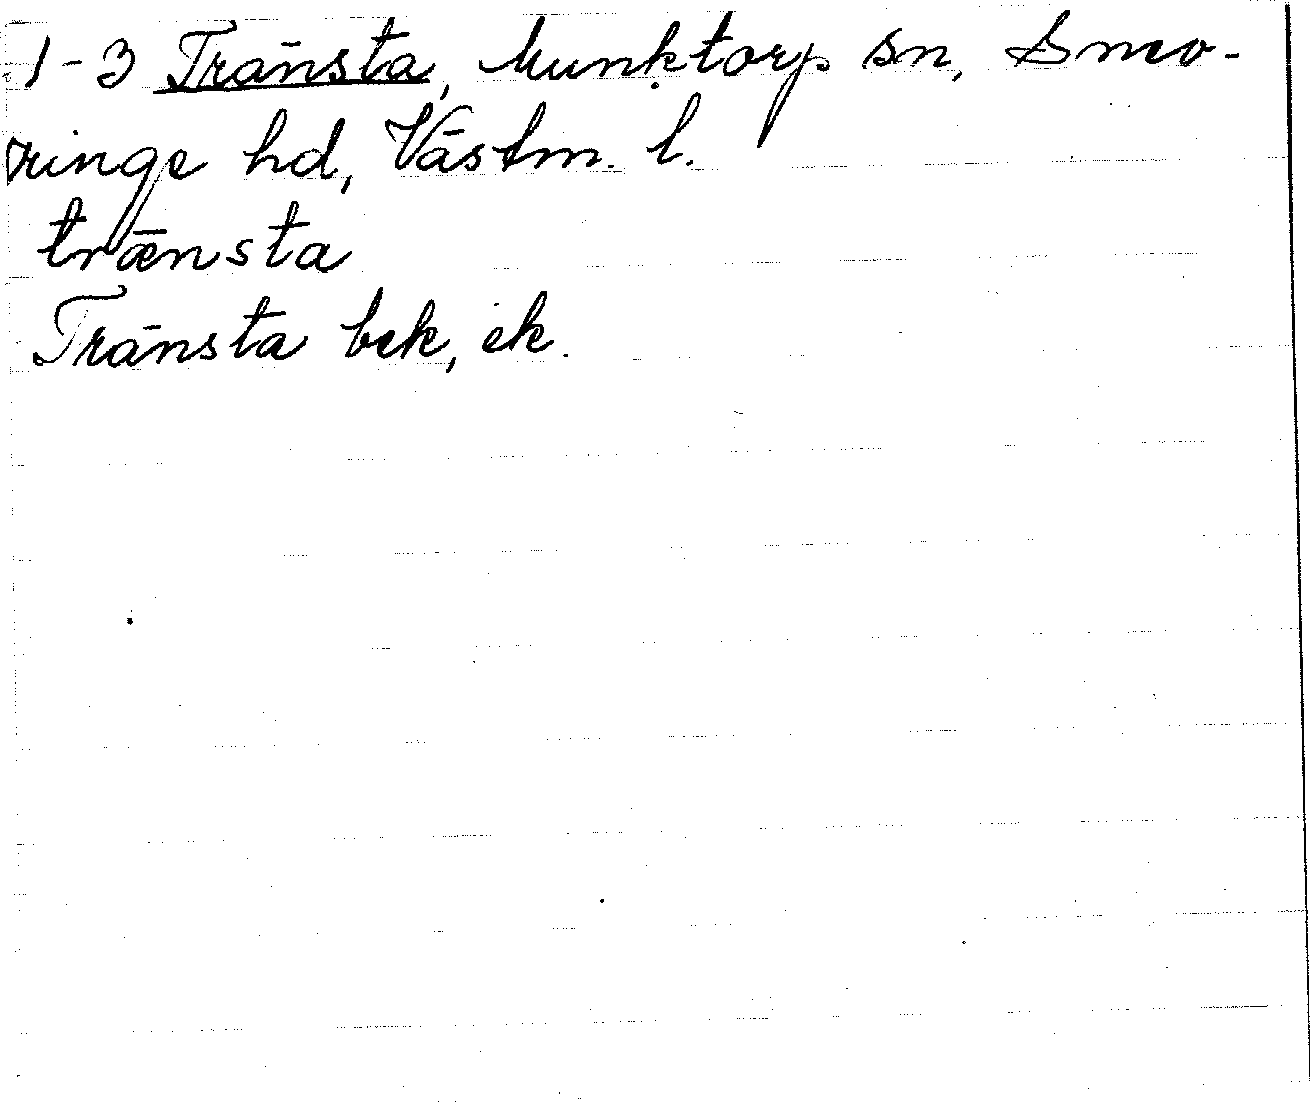 1-3 Tränsta, Munktorp sn, Snev-
ringe hd, Västm. l.
trǣnsta
Tränsta bek, ek.